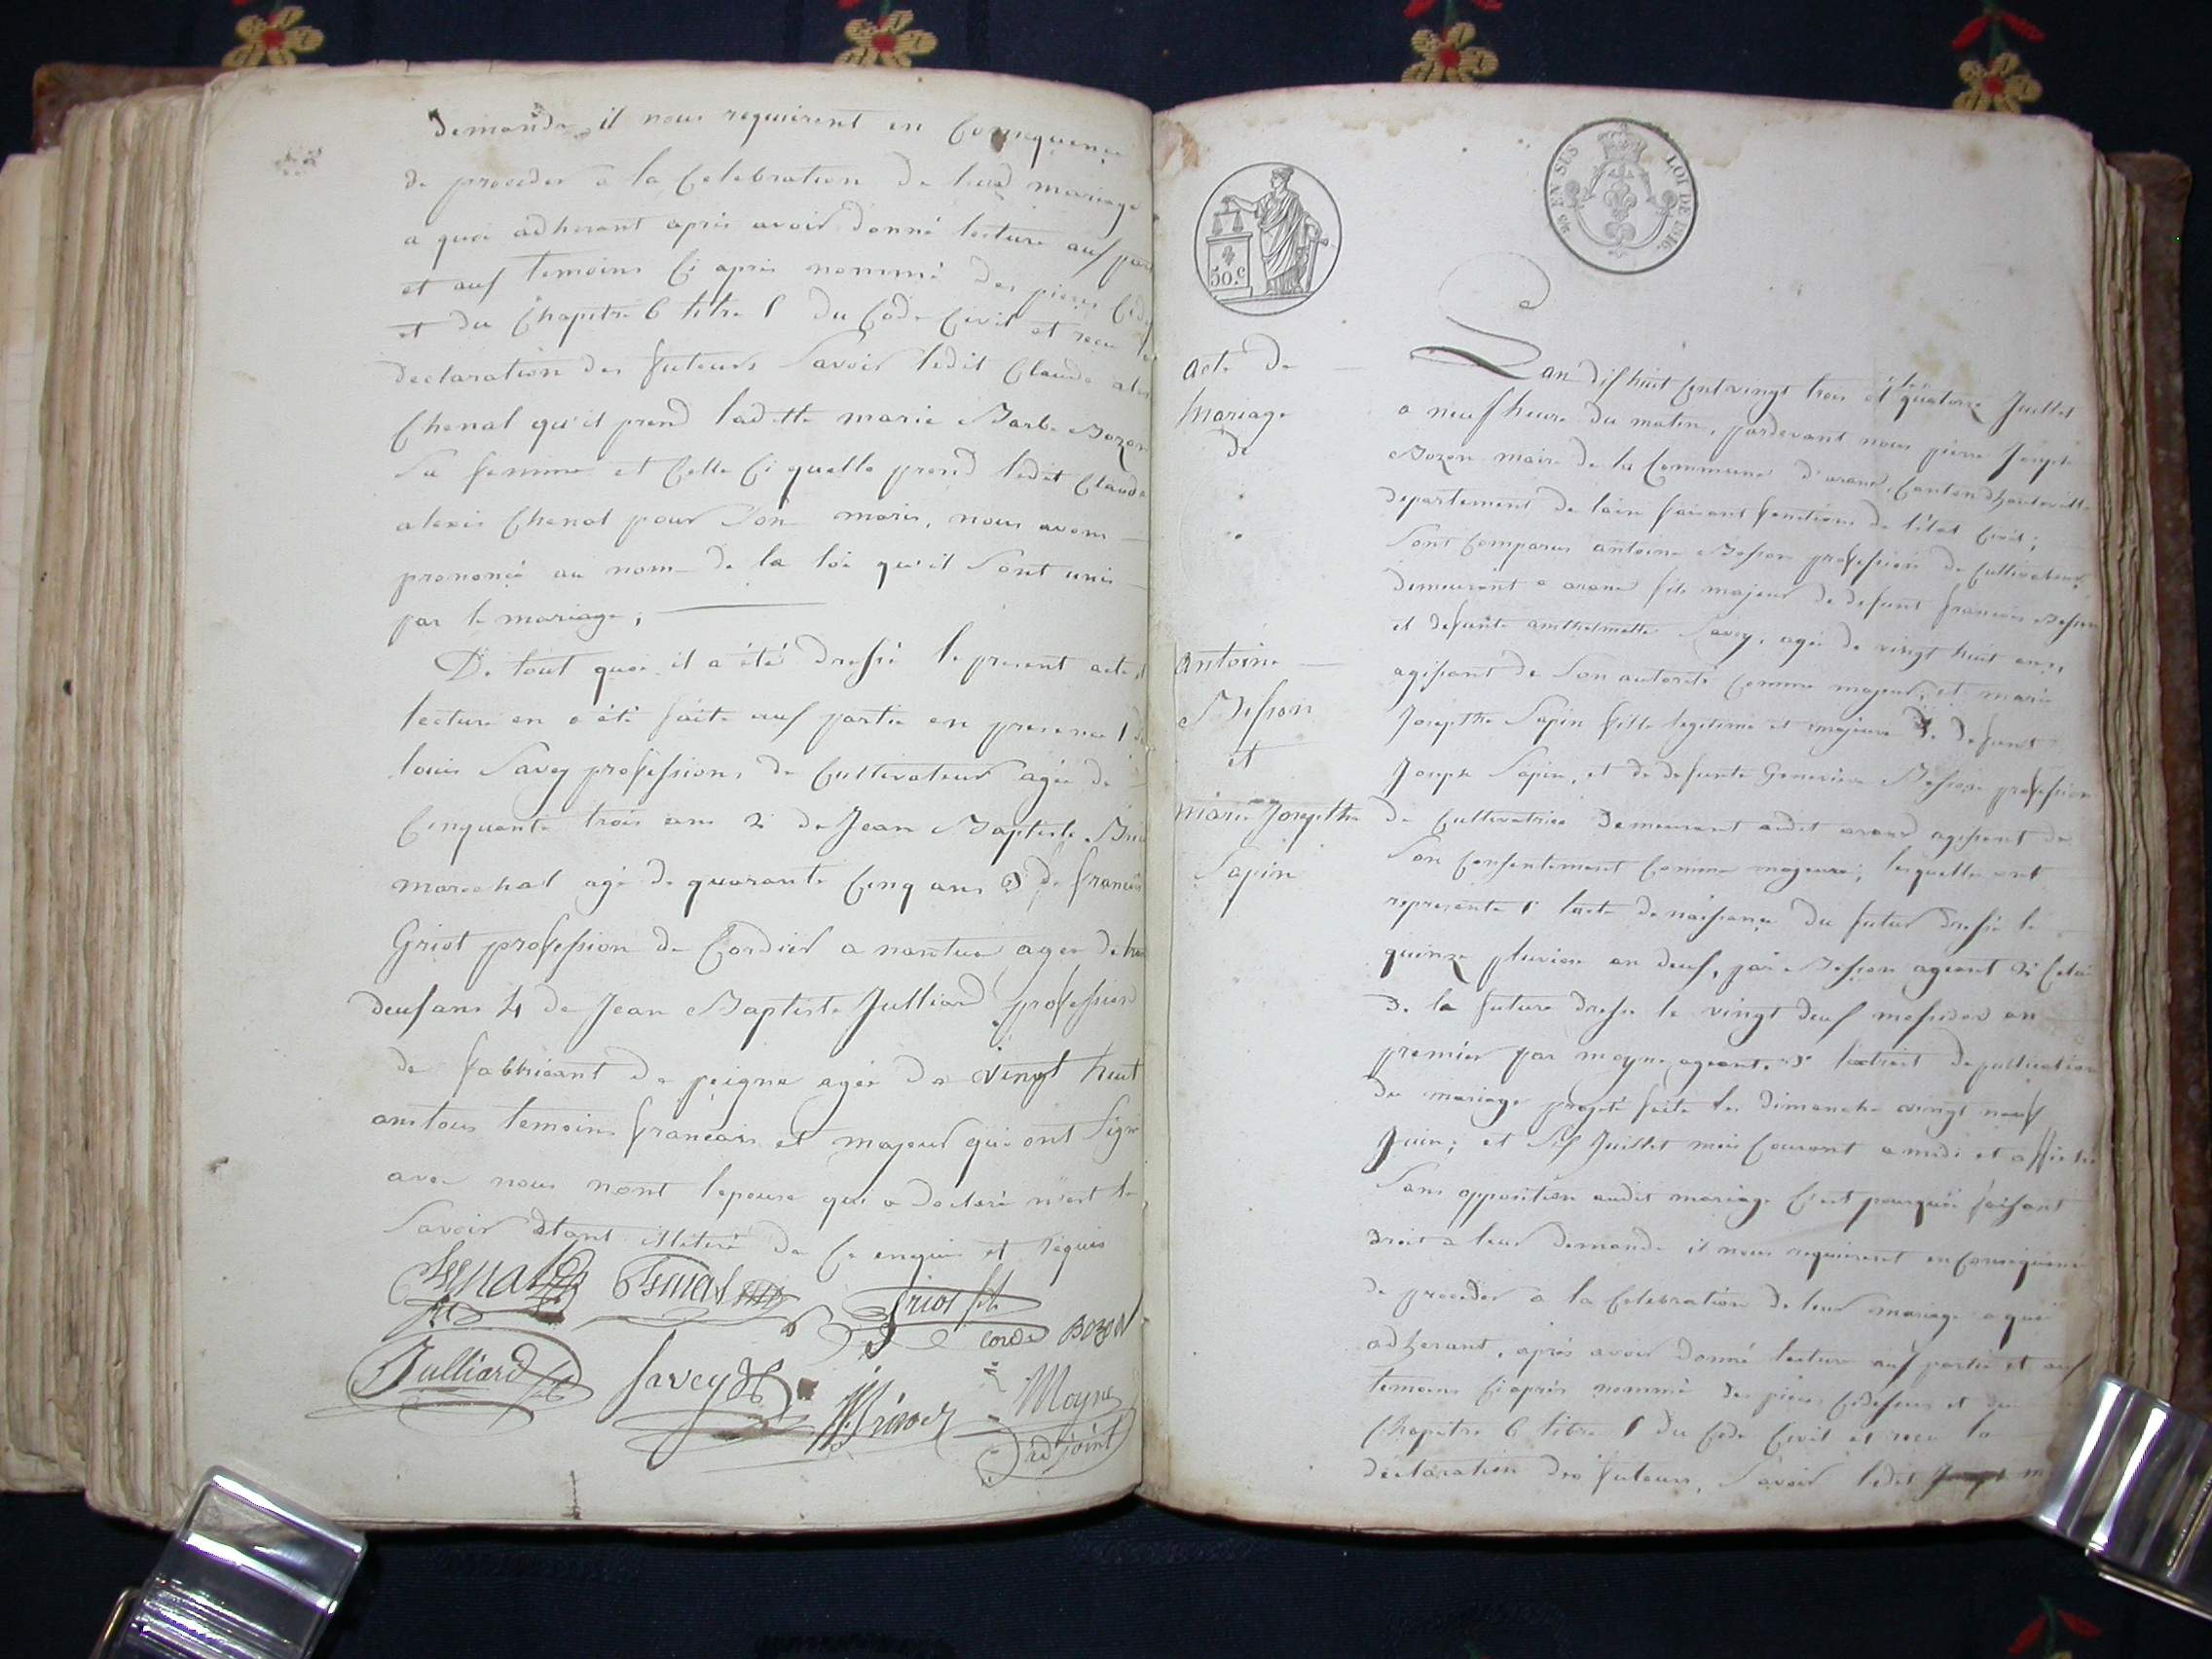 demande, il nous requierent en Consequence
de proceder a la Celebration de leur mariage
a quoi adherant apres avoir donné lecture aux
et aux temoins Ci apres nommé des pieces
et du Chapitre 6 titre 1 du Code Civil et recu
declaration des futeurs Savoir ledit Claude
Chenal qu'il prend ladette marie Barbe Bozon
Sa femme et Celle Ci quelle prend ledit Claude
alexis Chenal pour Son maris, nous avons
prononcé au nom de la loi qu'il Sont unis
par le mariage;
De tout quoi il a été dressé le present acte,
lecture en a été faite aux partie en presence 1
louis Savey profession de Cultivateur agée de
Cinquante trois ans 2 de Jean Baptiste
marechal agé de quarante Cinq ans 3 de francois
Griot profession de Cordier a nantua ager de
deux ans 4 de Jean Baptiste Julliard profession
de fabbricant de peigne agée de vingt huit
ans tous temoins francais et majeur qui ont Signé
avec nous nont lepouse qui a declaré n'est le
Savoir étant illitiré de Ce enquis et requis
Chenal
Griot
Corde Bozon
Julliard
Savey
Moyne
adjoint
50.c
EN SUS
LOI DE 1816.
acte de
Mariage
de
antoine
Besson
et
marie Josepthe
Sapin
Lan dix huit Cent vingt trois et le quatorze Juillet
a neuf heure du matin, pardevant nous pierre Joseph
Bozon maire de la Commune d'arand, Canton d'hauteville
departement de lain faisant fonctions de l'état Civil;
Sont Comparus antoine Besson profession de Cultivateur
demeurant a arand fils majeur de defunt francois Besson
et defunte anthelmette Savey, agée de vingt huit ans,
agissant de Son autorité Comme majeur, et marie
Josepthe Sapin fille legitime et majeure de defunt
Joseph Sapin, et de defunte Genevieve Besson profession
de Cultivatrice demeurant audit arand agissant de
Son Consentement Comme majeure; lesquelle ont
representé 1 lacte de naissance du futur dressé le
quinze pluviose an deux, par Besson ageant 2 Celui
de la future dressé le vingt deux messidor an
premier par moyne ageant. 3 lextrait de publication
du mariage projeté faite les dimanche vingt neuf
Juin; et Six Juillet mois Courant a midi et affiché
Sans opposition audit mariage C'est pourquoi faisant
droit a leur demande il nous requierent en Consequence
de proceder a la Celebration de leur mariage a quoi
adherant, apres avoir donné lecture aux partie et aux
temoins Ciapres nommé des pieces Cidessus et du
Chapitre 6 titre 1 du Code Civil et recu la
declaration des futeurs, Savoir ledit